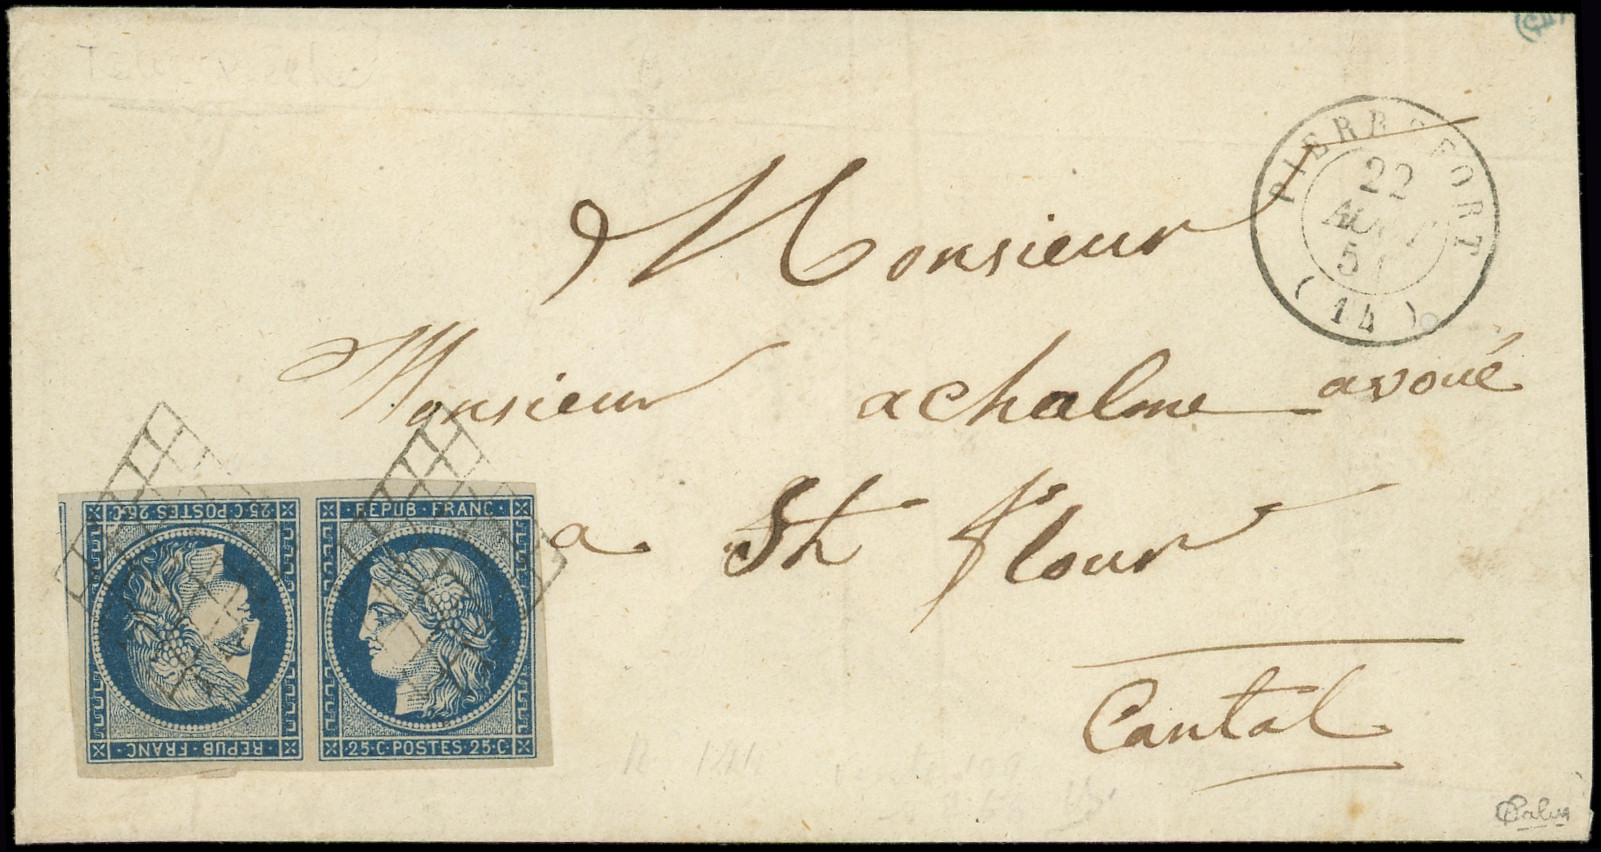 PIERREFORT
22
AOUT
51
(14)
Monsieur
Monsieur achalme avoué
a St flour
Cantal
25·C·POSTES·25·C
REPUB·FRANC
REPUB·FRANC·
25·C·POSTES·25·C
Calves